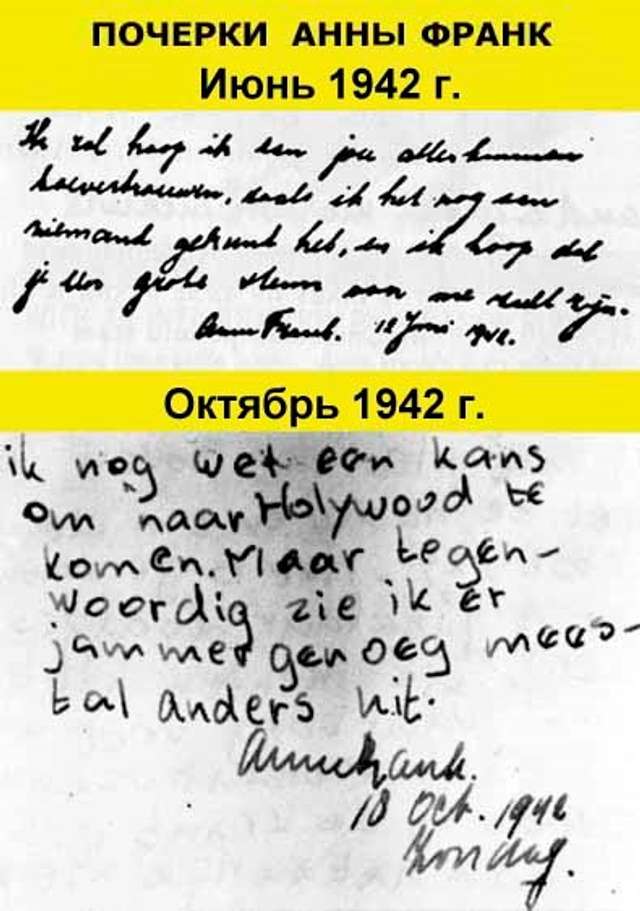 ПОЧЕРКИ АННЫ ФРАНК
Июнь 1942 г.
Ik zal hoop ik aan jou alles kunnen
toevertrouwen, zoals ik het nog aan
niemand gekund heb, en ik hoop dat
je een grote steun voor me zult zijn.
Anne Frank. 12 Juni 1942.
Октябрь 1942 г.
ik nog wel een kans
om naar Holywood te
komen. Maar tegen-
woordig zie ik er
jammer genoeg mees-
tal anders uit.
Annefrank.
18 Oct. 1942
Zondag.